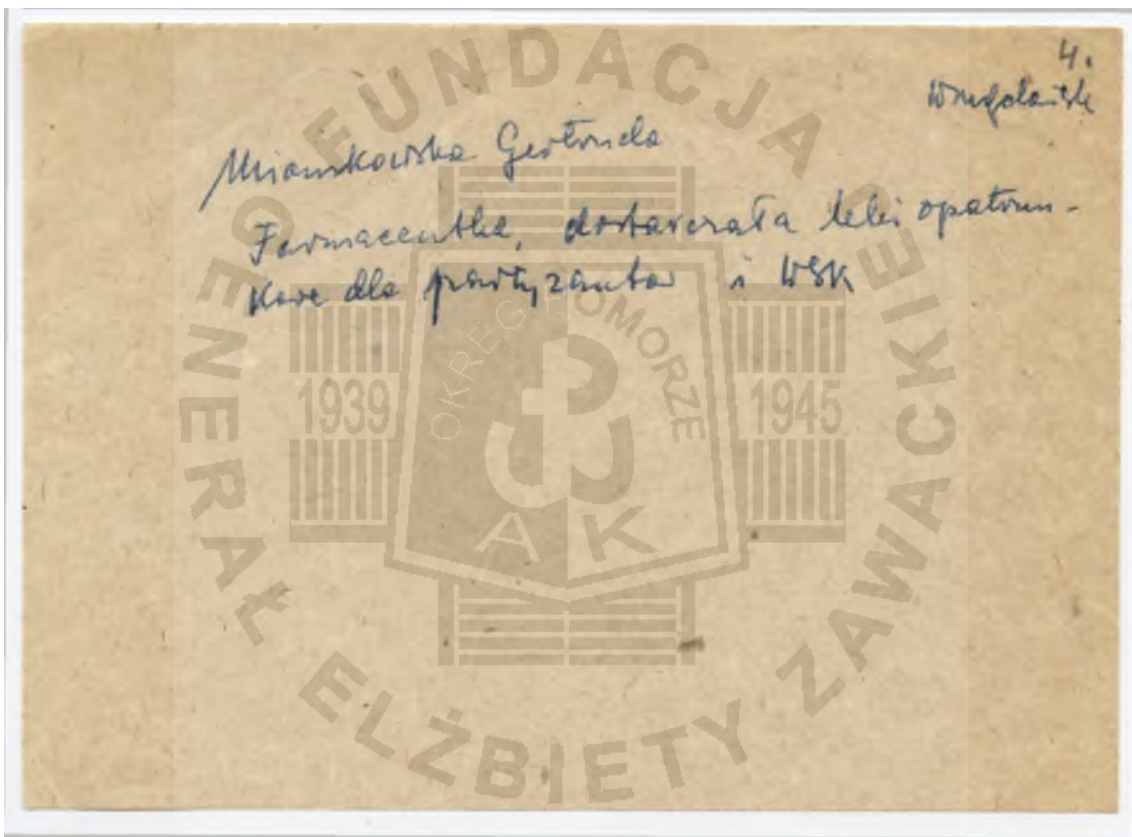 4.
Gertruda
Farmaceutka, dostarczała leki opatrun-
kowe dla partyzantów i WSK
FUNDACJA
GENERAŁ ELŻBIETY ZAWACKIEJ
OKRĘG POMORZE
1939
1945
AK